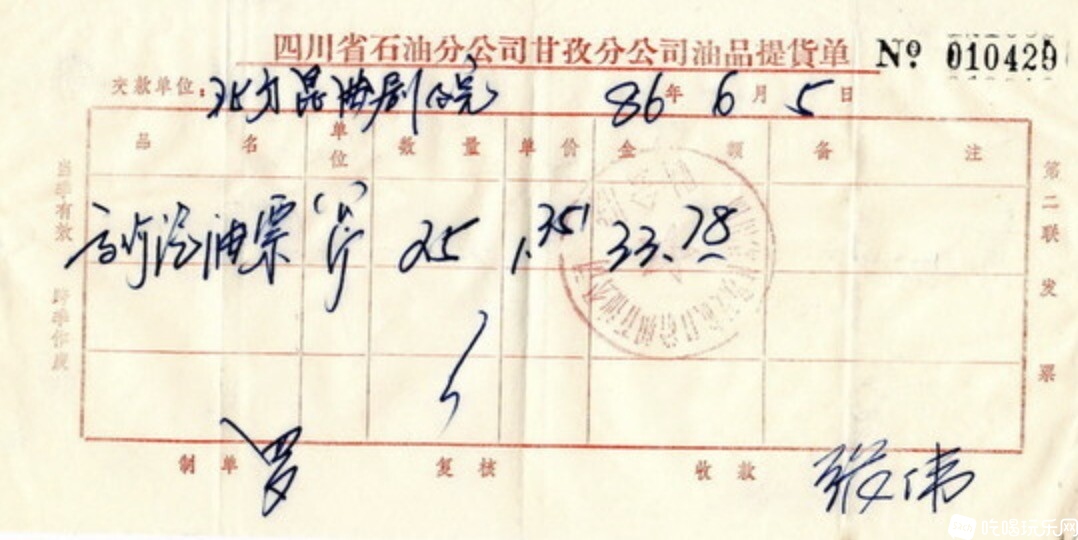 四川省石油分公司甘孜分公司油品提货单 No. 010429
交款单位：北方昆曲剧院 86年6月5日
品名 单位 数量 单价 金额 备注
汽油票 25 1.351 33.78
制单 罗 复核 收款 张伟
当季有效 跨季作废
第二联发票
吃喝玩乐网